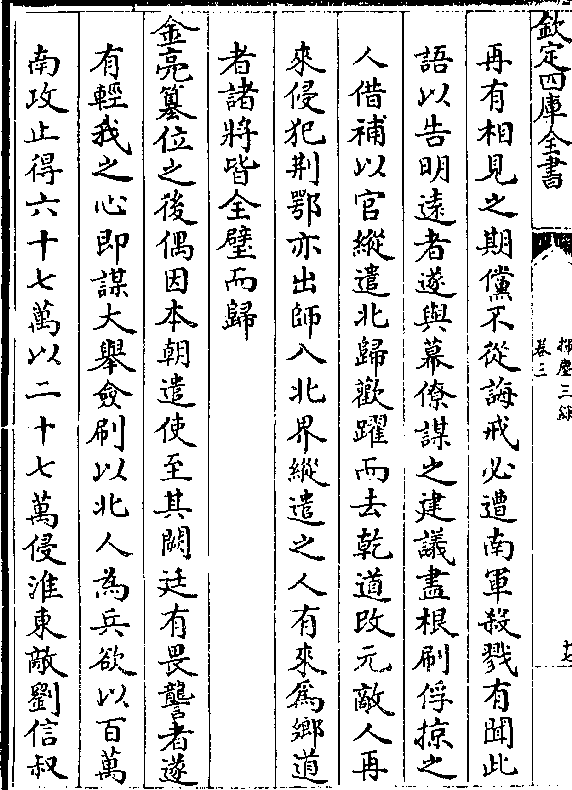 欽定四庫全書
揮麈三錄
卷三
再有相見之期儻不從誨戒必遭南軍殺戮有聞此
語以告明遠者遂與幕僚謀之建議盡根刷俘掠之
人借補以官縱遣北歸歡躍而去乾道改元敵人再
來侵犯荆鄂亦出師入北界縱遣之人有來為鄉道
者諸將皆全璧而歸
金亮簒位之後偶因本朝遣使至其闕廷有畏讋者遂
有輕我之心即謀大舉僉刷以北人為兵欲以百萬
南攻止得六十七萬以二十七萬侵淮東敵劉信叔